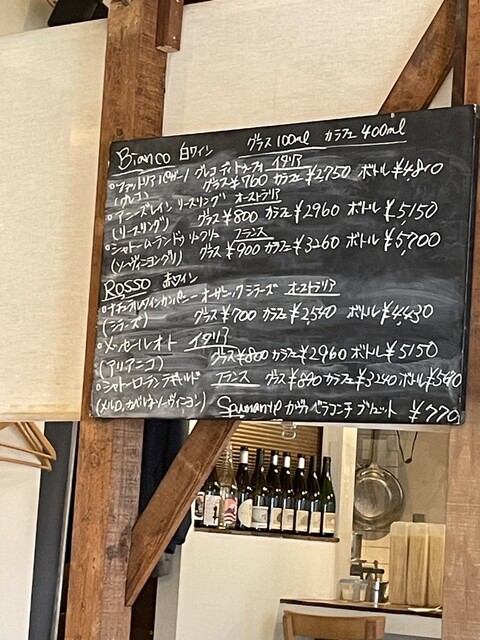 Bianco 白ワイン グラス100ml カラフェ400ml
イタリア
(グレコ) グラス¥760 カラフェ¥2750 ボトル¥4810
アニーズレイン リースリング オーストラリア
(リースリング) グラス¥800 カラフェ¥2960 ボトル¥5,150
フランス
(ソーヴィニヨングリ) グラス¥900 カラフェ¥3260 ボトル¥5,700
Rosso 赤ワイン
ナチュラルワインカンパニー オーガニックシラーズ オーストラリア
(シラーズ) グラス¥700 カラフェ¥2,540 ボトル¥4,430
メッセールオト イタリア
(アリアニコ) グラス¥800 カラフェ¥2960 ボトル¥5150
フランス グラス¥890 カラフェ¥3240 ボトル
(メルロ、カベルネソーヴィニヨン) カヴァ ベラコンチ ブリュット ¥770